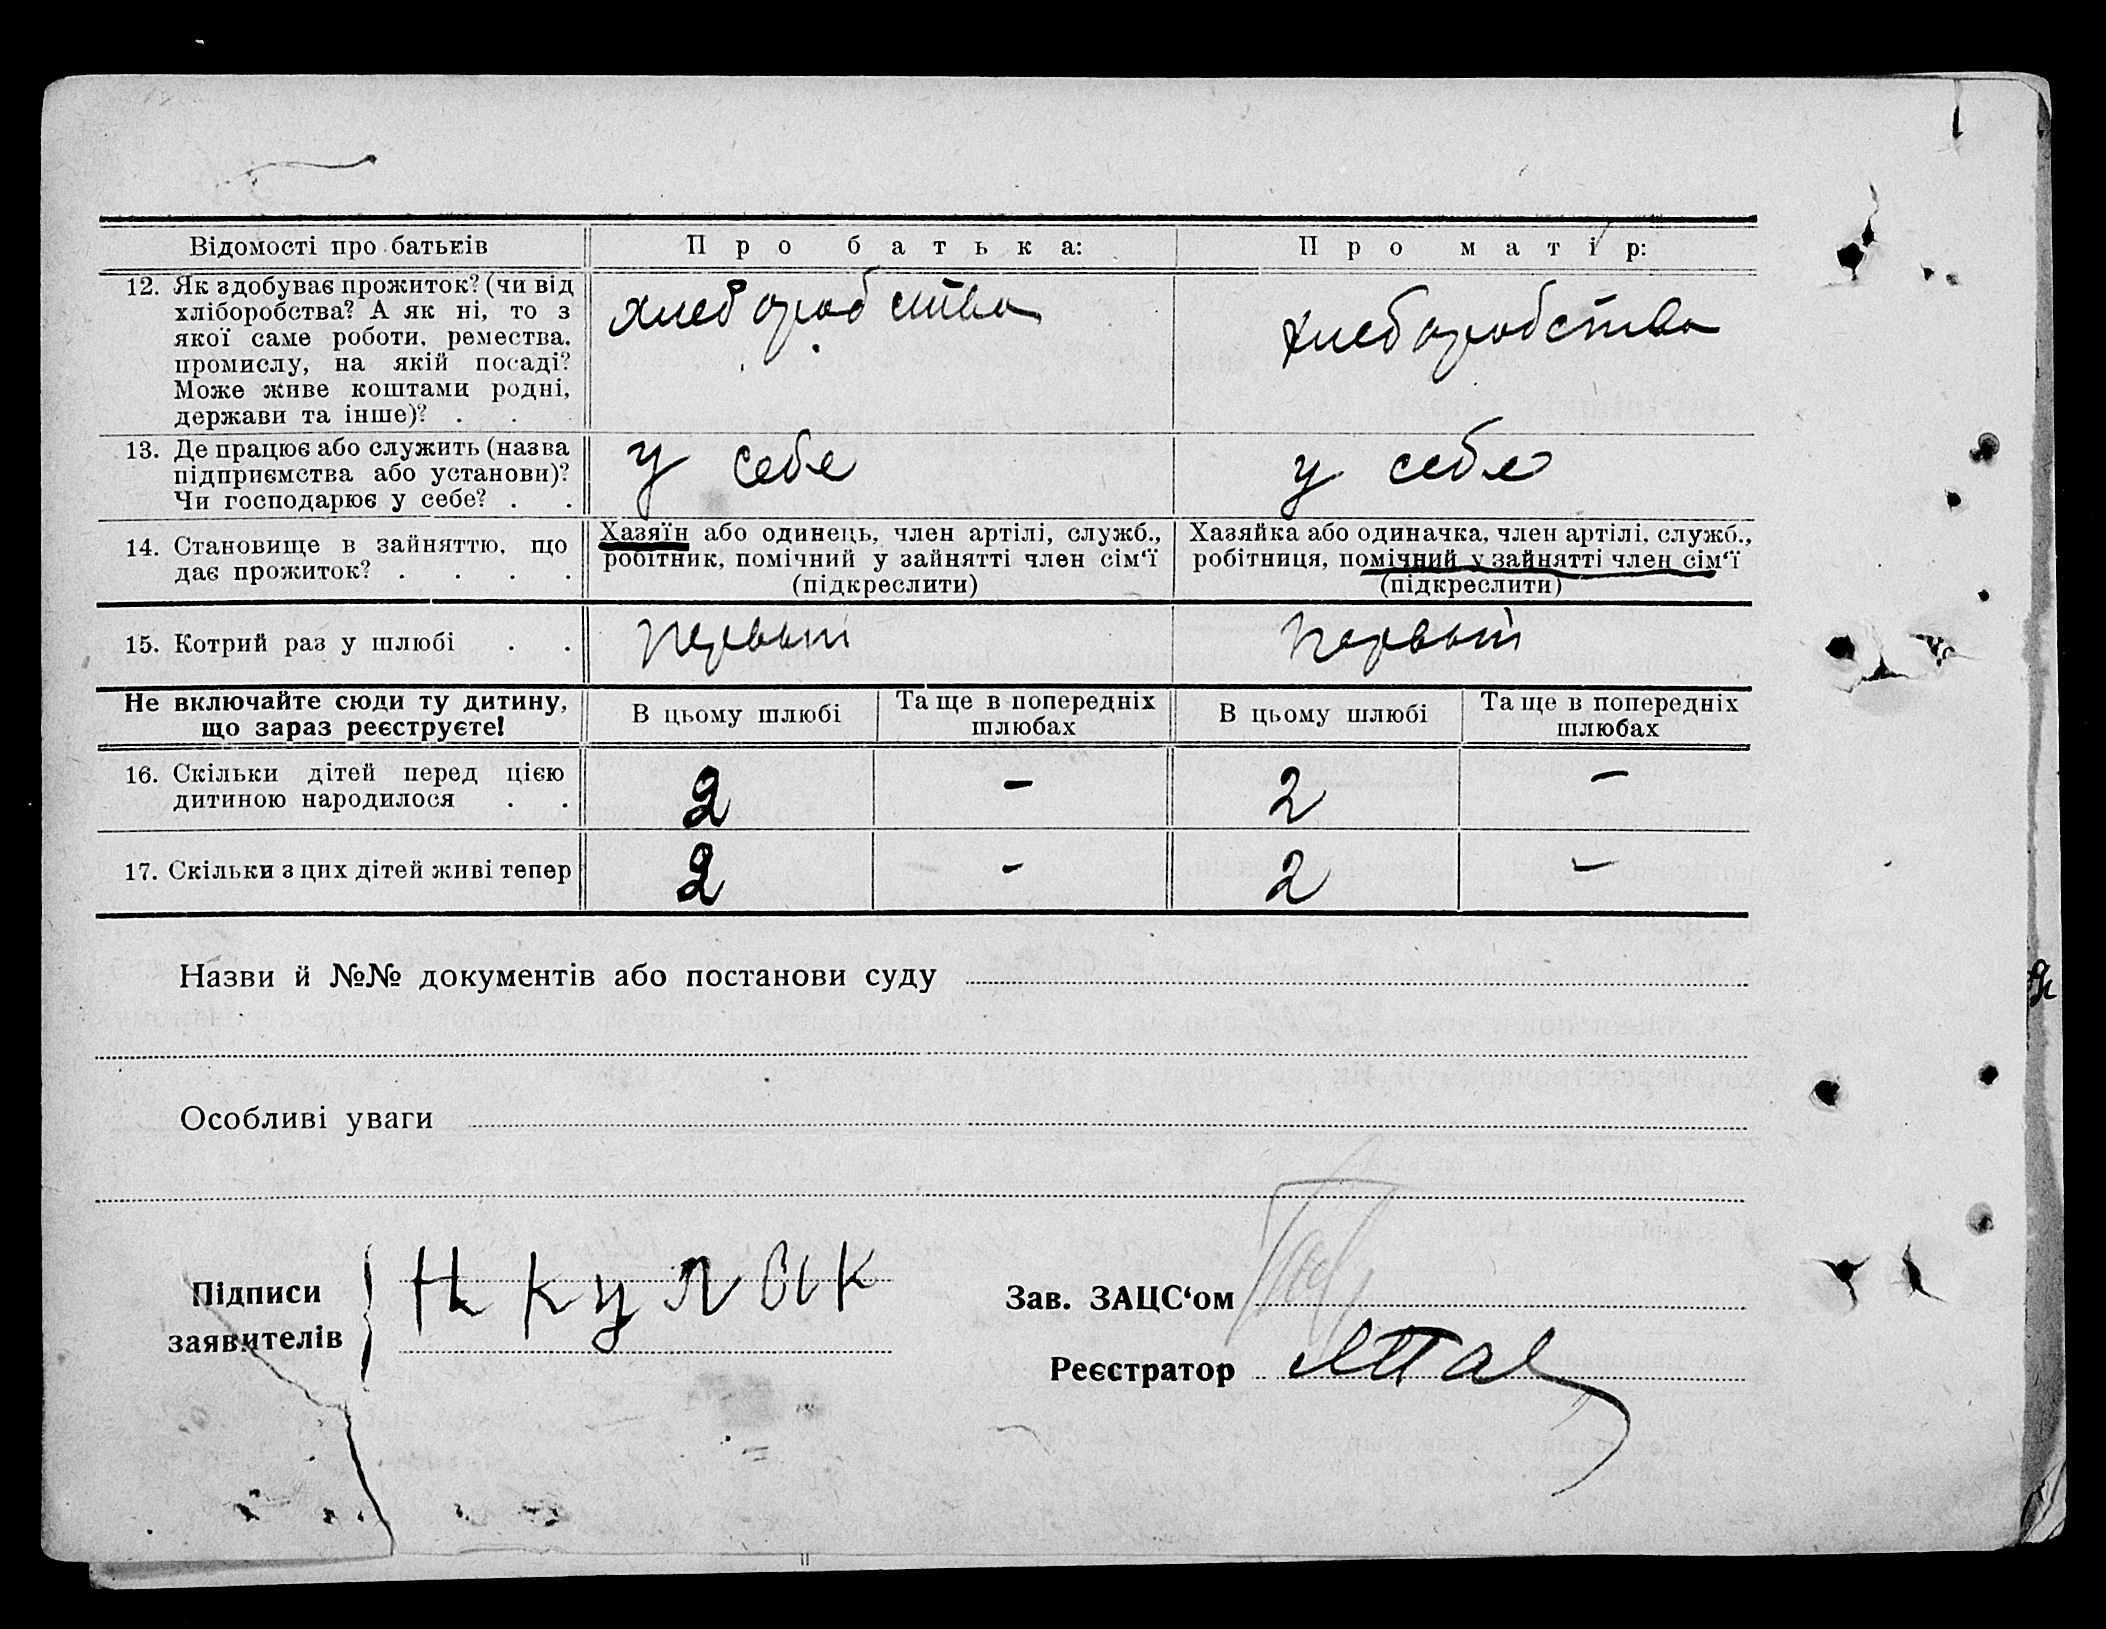 Відомості про батьків
Про батька:
Про матір:
12. Як здобуває прожиток? (чи від
хліборобства? А як ні, то з
якої саме роботи, ремества,
промислу, на якій посаді?
Може живе коштами родні,
держави та інше)? . .
хлеборобства
хлеборобства
13. Де працює або служить (назва
підприємства або установи)?
Чи господарює у себе? . .
у себе
у себе
14. Становище в зайняттю, що
дає прожиток? . . . .
Хазяїн або одинець, член артілі, служб.,
робітник, помічний у зайнятті член сім‘ї
(підкреслити)
Хазяйка або одиначка, член артілі, служб.,
робітниця, помічний у зайнятті член сім‘ї
(підкреслити)
15. Котрий раз у шлюбі . .
первый
первый
Не включайте сюди ту дитину,
що зараз реєструєте!
В цьому шлюбі
Та ще в попередніх
шлюбах
В цьому шлюбі
Та ще в попередніх
шлюбах
16. Скільки дітей перед цією
дитиною народилося . .
2
–
2
–
17. Скільки з цих дітей живі тепер
2
–
2
–
Назви й №№ документів або постанови суду
Особливі уваги
Підписи
заявителів
Н кулык
Зав. ЗАЦС‘ом
Реєстратор